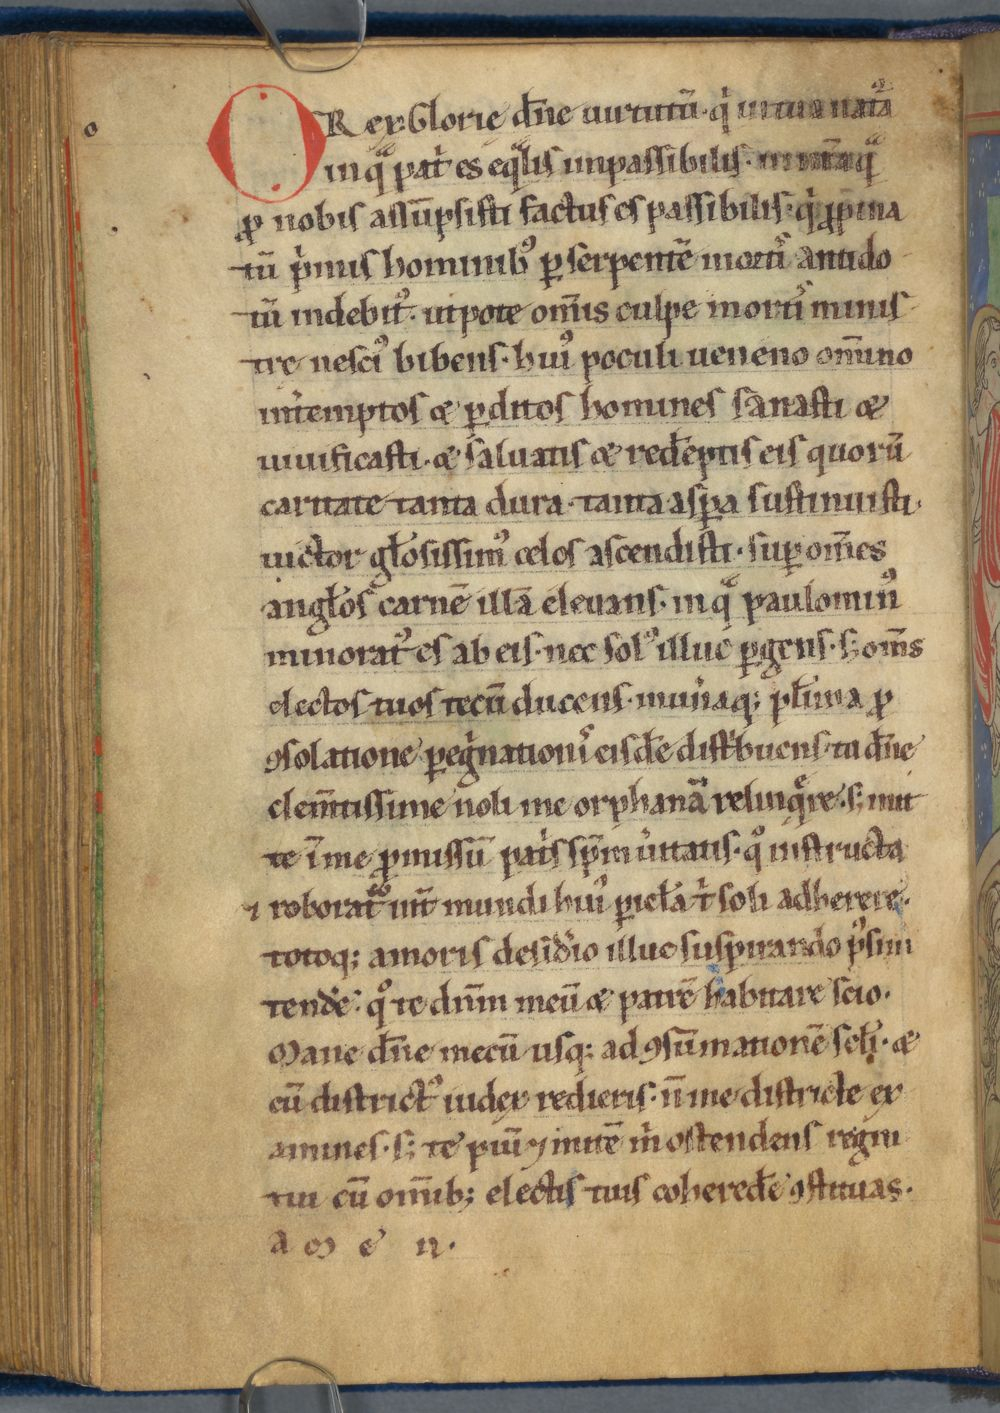 O Rex. Glorie dn̄e uirtutū. qͥ in tua natā
in qᷓ patͥ es eqͣlis inpassibilis.
ꝓ nobis assūpsisti factus es passibilis. qͥ ꝓpina
tū pͥmis hominibꝰ ꝑ serpentē mortͥ antido
tū indebitꝰ. utpote om̄is culpe mortͥ minis
tre nesciꝰ bibens. huiꝰ poculi ueneno om̄ino
intͥemptos æ ꝑditos homines sanasti æ
uiuificasti. æ saluatis æ redēptis eis quorū
caritate tanta dura. tanta aspꝑa sustinuisti.
uictor gl̄osissimꝰ celos ascendisti. suꝑ om̄es
angl̄os carnē illā eleuans. in qᷓ paulominꝰ
minoratꝰ es ab eis. nec solꝰ illuc ꝑgens. sꝫ om̄s
electos tuos tecū ducens. mun̄aqꝫ pl̄ima ꝓ
ꝯsolatione ꝑegͥnationͥ eisdē distͥbuens. tu dn̄e
clem̄tissime noli me orphanā relinqͤre. sꝫ mit
te ī me ꝓmissū patͥs sp̄m uͥitatis. qͦ instructa
⁊ roborata uitͥ mundi huiꝰ ꝑicl̄a tͥ soli adherere.
totoqꝫ amoris desidͥio illuc suspirando pꝰsim
tendē. qͦ te dn̄m meū æ patrē habitare scio.
Mane dn̄e mecū usqꝫ ad ꝯsūmationē scl̄i. æ
cū districtꝰ iudex redieris. n̄ me districte ex
amines. sꝫ te piū ⁊ mitē mͥ ostendens regni
tui cū om̄ibꝫ electis tuis coheredē ꝯstituas.
a m e n.